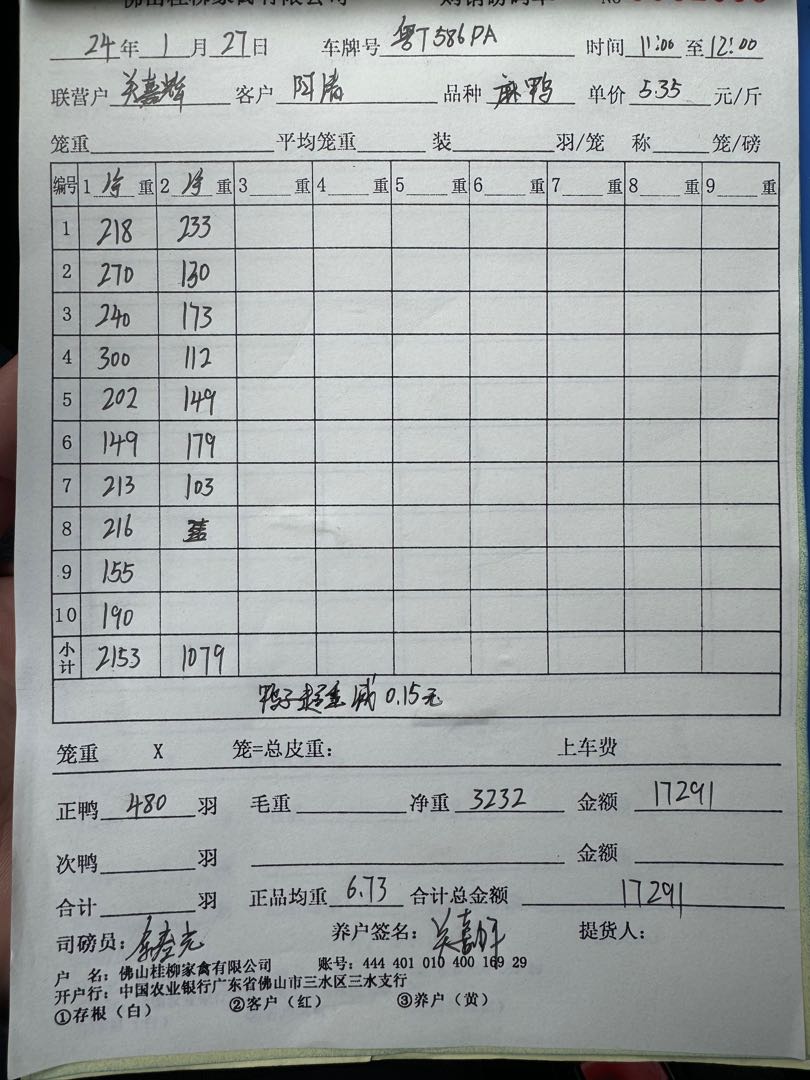 佛山桂柳家禽有限公司 购销磅码单 №
24年 1月 27日 车牌号 粤T586PA 时间 11:00 至 12:00
联营户 关嘉辉 客户 阿清 品种 麻鸭 单价 5.35 元/斤
笼重 平均笼重 装 羽/笼 称 笼/磅
编号 1 净 重 2 净 重 3 重 4 重 5 重 6 重 7 重 8 重 9 重
1 218 233
2 270 130
3 240 173
4 300 112
5 202 149
6 149 179
7 213 103
8 216
9 155
10 190
小计 2153 1079
鸭子超重减0.15元
笼重 X 笼=总皮重: 上车费
正鸭 480 羽 毛重 净重 3232 金额 17291
次鸭 羽 金额
合计 羽 正品均重 6.73 合计总金额 17291
司磅员: 养户签名: 关嘉辉 提货人:
户 名: 佛山桂柳家禽有限公司 账号: 444 401 010 400 169 29
开户行: 中国农业银行广东省佛山市三水区三水支行
①存根(白) ②客户(红) ③养户(黄)